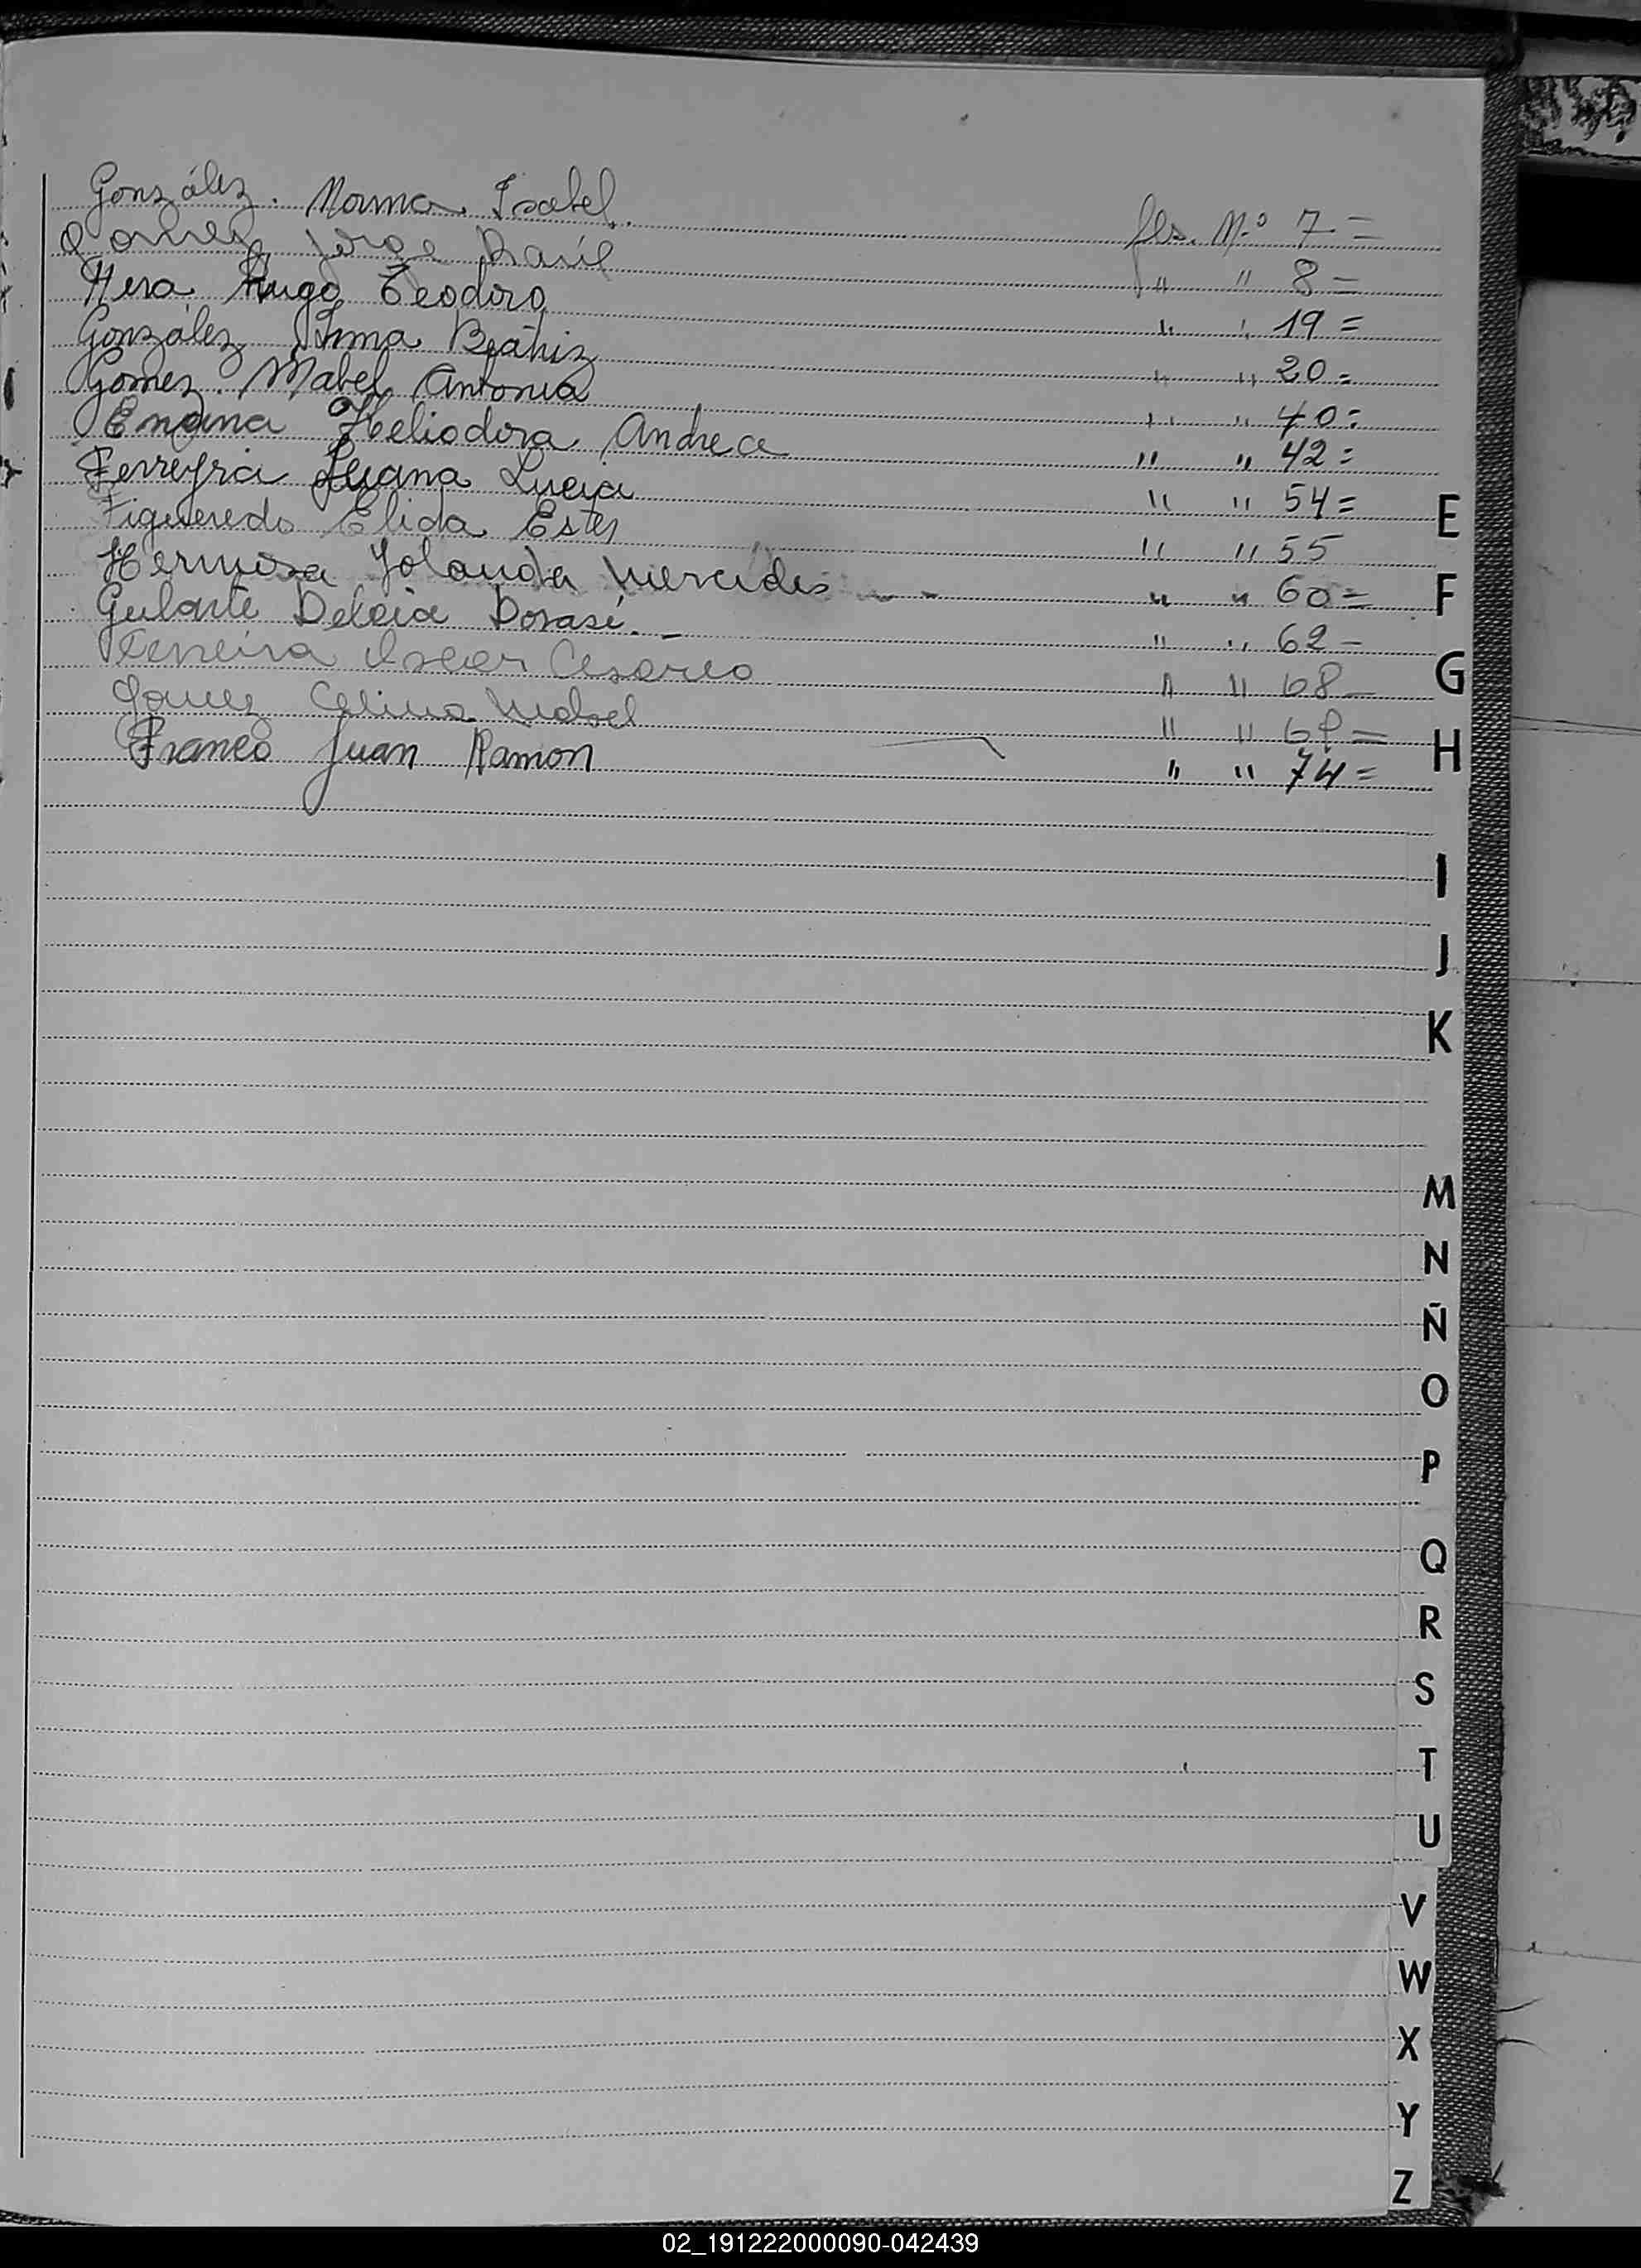 González. Norma Isabel. fls. Nº 7 =
Gomez Jorge Raúl " " 8 =
Hugo Teodoro " " 19 =
González Irma Beatriz " " 20 =
Gomez. Mabel Antonia " " 40 =
Encina Heliodora Andrea " " 42 =
Ferreyra Juana Lucia " " 54 =
Figueredo Elida Ester " " 55
Hermosa Yolanda Mercedes - - " " 60 =
Gularte Delcia Dorasi. - " " 62 -
Ferreira Oscar Cesareo " " 68 -
Gomez Celina Mabel " " =
Franco Juan Ramon " " 74 =
E
F
G
H
I
J
K
M
N
Ñ
O
P
Q
R
S
T
U
V
W
X
Y
Z
02_191222000090-042439